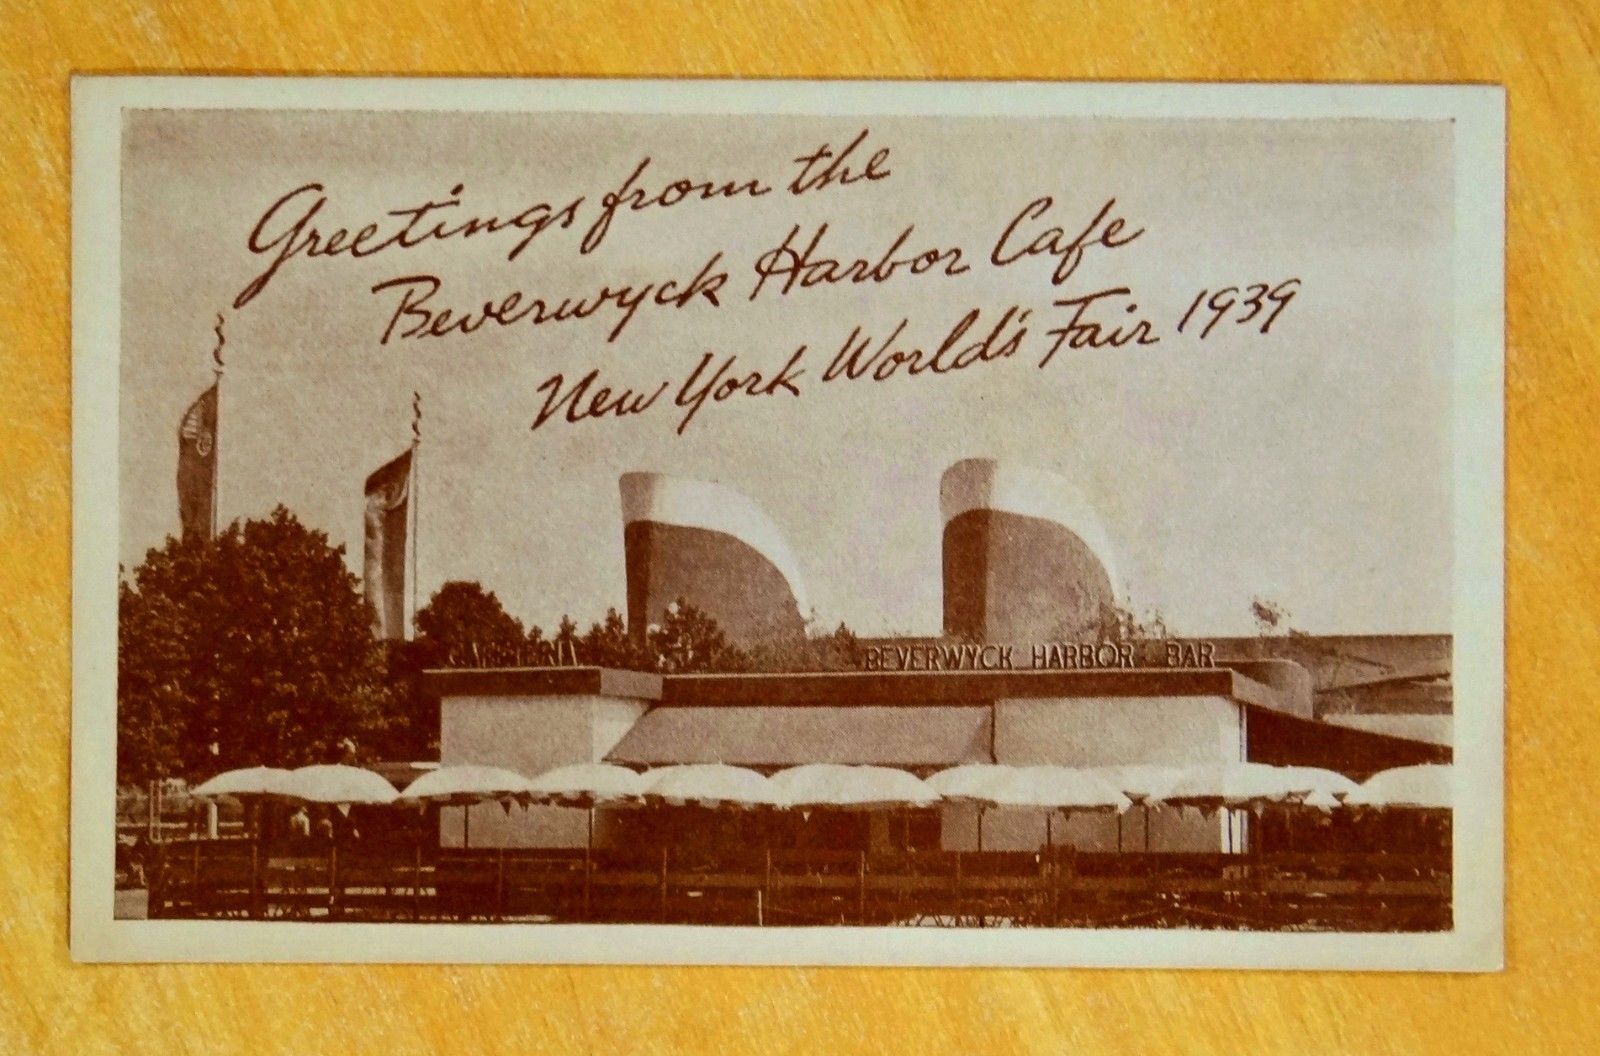 Greetings from the
Beverwyck Harbor Cafe
New York World's Fair 1939
BEVERWYCK HARBOR BAR